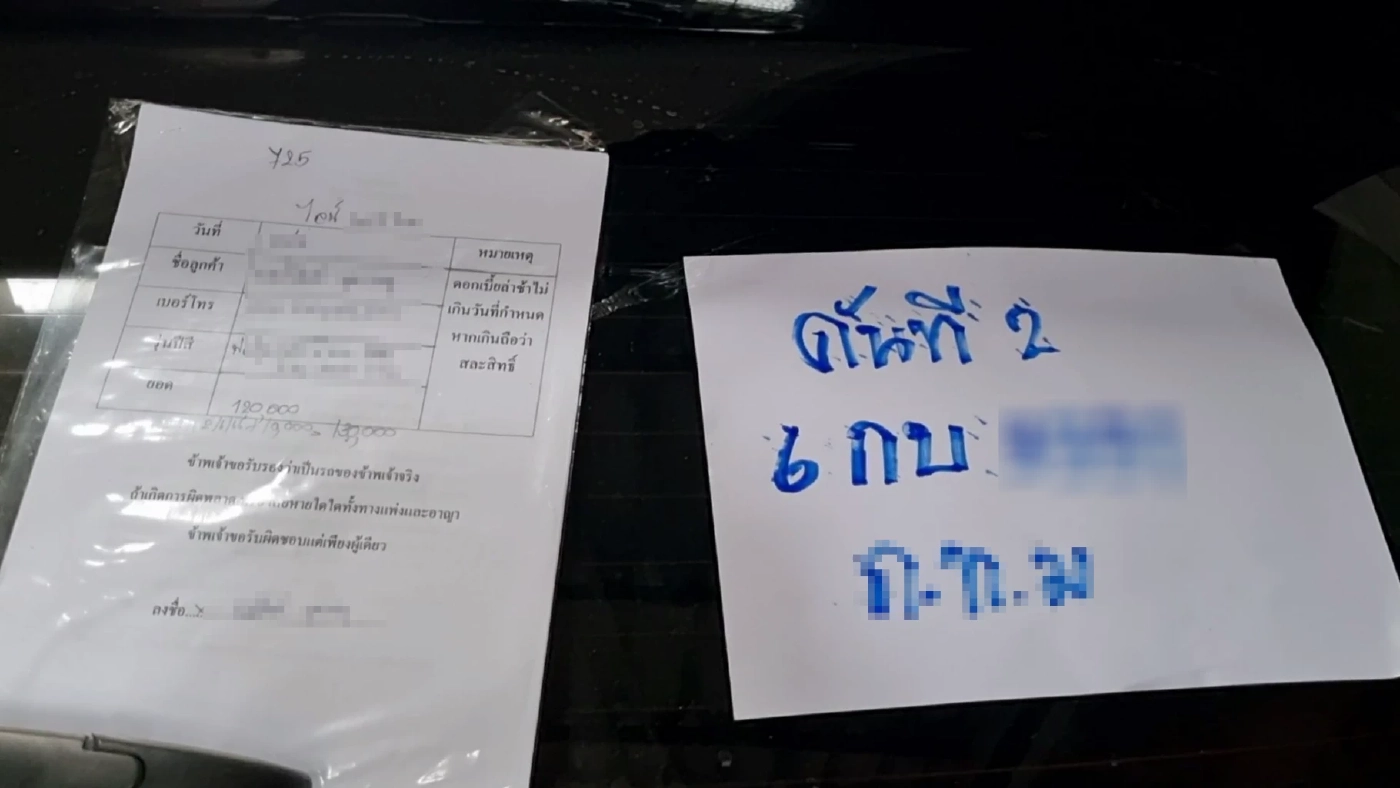 725
ไลน์
วันที่
ชื่อลูกค้า
เบอร์โทร
รุ่นปีสี
ยอด
120,000
10,000 130,000
หมายเหตุ
ดอกเบี้ยล่าช้าไม่
เกินวันที่กำหนด
หากเกินถือว่า
สละสิทธิ์
ข้าพเจ้าขอรับรองว่าเป็นรถของข้าพเจ้าจริง
ถ้าเกิดการผิดพลาด หายใดใดทั้งทางแพ่งและอาญา
ข้าพเจ้าขอรับผิดชอบแต่เพียงผู้เดียว
ลงชื่อ...x
คันที่ 2
6 กบ
ก.ท.ม